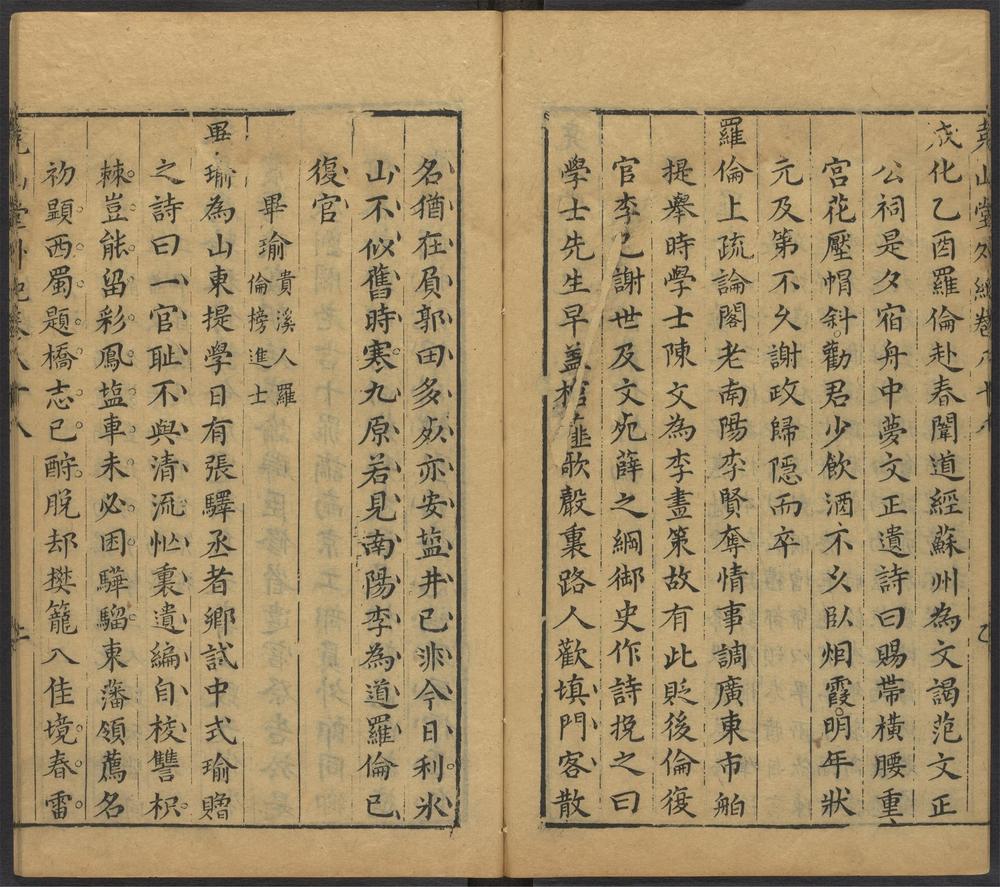 堯山堂外紀卷八十八
成化乙酉羅倫赴春闈道經蘇州為文謁范文正
公祠是夕宿舟中夢文正遺詩曰賜帶橫腰重
宮花壓帽斜勸君少飲酒不久臥烟霞明年狀
元及第不久謝政歸隱而卒
羅倫上疏論閣老南陽李賢奪情事調廣東市舶
提舉時學士陳文為李畫策故有此貶後倫復
官李已謝世及文死薛之綱御史作詩挽之曰
學士先生早蓋棺薤歌聲裏路人歡填門客散
名猶在負郭田多死亦安塩井已非今日利氷
山不似舊時寒九原若見南陽李為道羅倫已
復官
畢瑜貴溪人羅
倫榜進士
畢瑜為山東提學日有張驛丞者鄉試中式瑜贈
之詩曰一官耻不與清流忙裏遺編自校讐枳
棘豈能留彩鳳塩車未必困驊騮東藩領薦名
初顯西蜀題橋志已酧脫却樊籠入佳境春雷
堯山堂外紀卷八十八